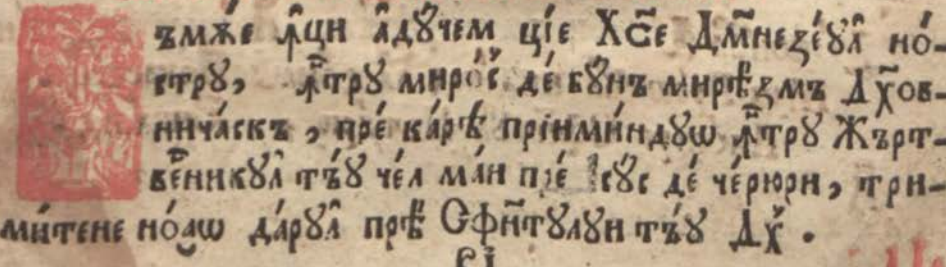 ъмѫ́е ꙟ҆цїи а҆дꙋ́чем ціе Хс҃е Дм҃незе́ꙋл но́-
стрꙋ, ꙟ҆трꙋ миро́с де́ бꙋ́нъ мирѣзмъ Дх҃ов-
нича́скъ, пре́ ка́рѣ прїими́ндꙋѡ ꙟ҆трꙋ Жърт-
ве́никꙋл тъ́ꙋ че́л ма́и пре́ сꙋ́с де́ че́рюри, три-
ми́тене но́аѡ да́рꙋл прѣ́ Сфи́нтꙋлꙋи тъ́ꙋ Дх҃.